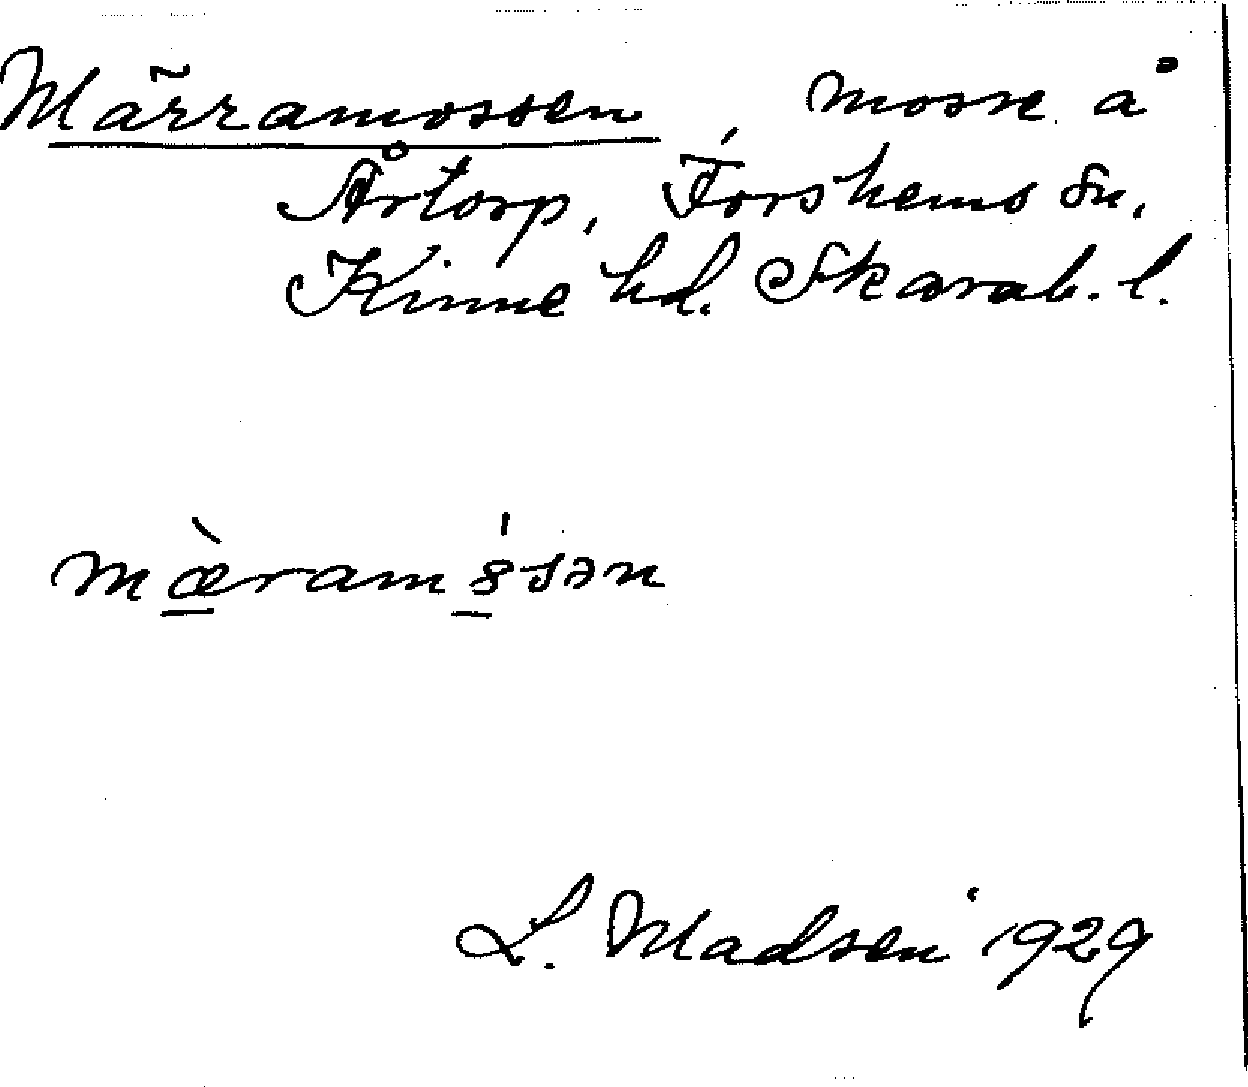 Märramossen, mosse å
Årtorp, Forshems sn,
Kinne hd. Skarab. l.
mæ̀ramósən
L. Madsen 1929